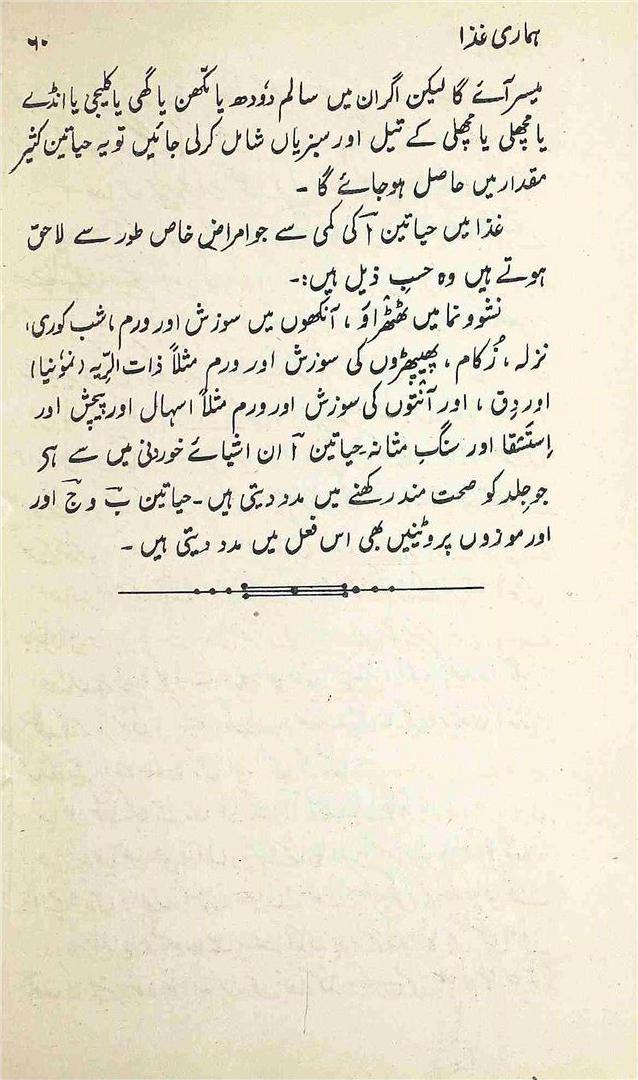 ہماری غذا ۶۰
میسر آئے گا لیکن اگر ان میں سالم دودھ یا مکّھن یا گھی یا کلیجی یا انڈے
یا مچھلی یا مچھلی کے تیل اور سبزیاں شامل کرلی جائیں تو یہ حیاتین کثیر
مقدار میں حاصل ہوجائے گا ۔
غذا میں حیاتین آ کی کمی سے جو امراض خاص طور سے لاحق
ہوتے ہیں وہ حسبِ ذیل ہیں:۔
نشوونما میں ٹھٹھراؤ ، آنکھوں میں سوزش اور ورم ، شب کوری،
نزلہ ، زُکام ، پھیپھڑوں کی سوزش اور ورم مثلاً ذات الرّیہ (نمونیا)
اور دِق ، اور آنتوں کی سوزش اور ورم مثلاً اسہال اور پیچش اور
اِستسقا اور سنگِ مثانہ۔حیاتین آ ان اشیائے خوردنی میں سے ہی
جو جِلد کو صحت مند رکھنے میں مدد دیتی ہیں ۔ حیاتین بؔ و جؔ اور
اور موزوں پروٹینیں بھی اس فعل میں مدد دیتی ہیں ۔